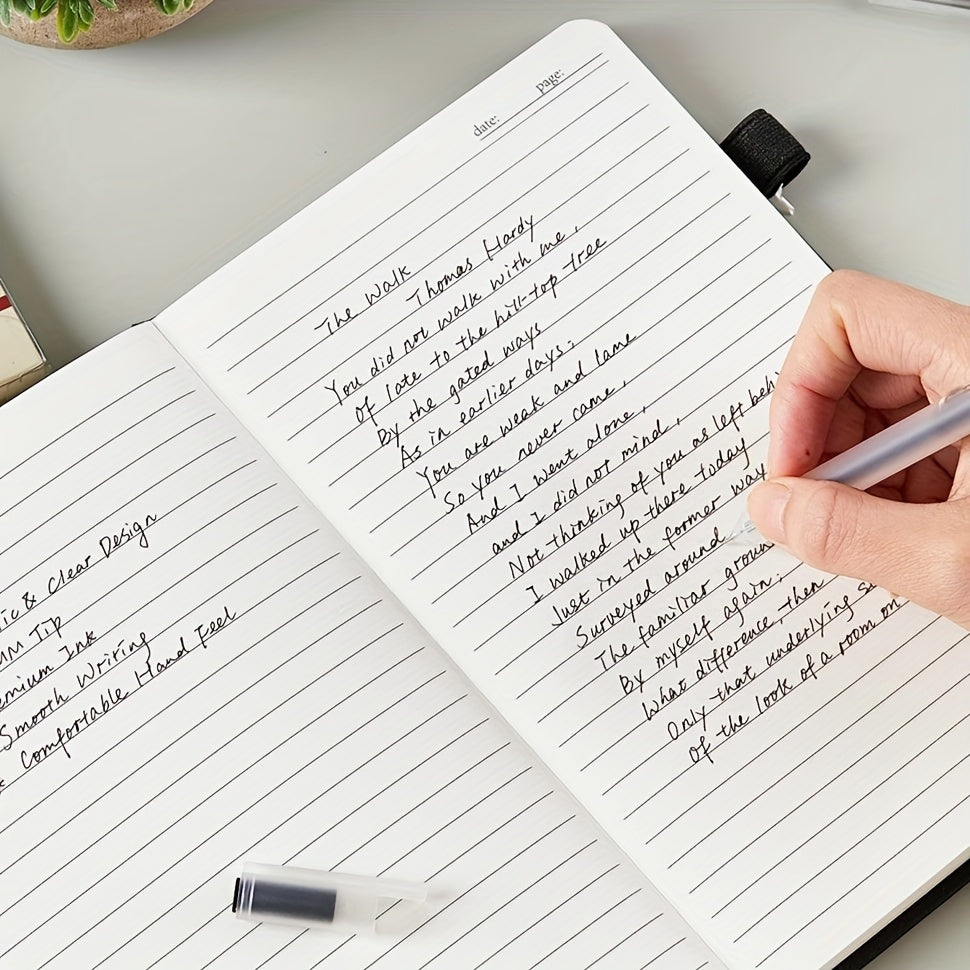 ic & Clear Design
mm Tip
emium Ink
Smooth Writing
* Comfortable Hand Feel
date:
page:
The Walk
Thomas Hardy
You did not walk with me,
Of late to the hill-top tree
By the gated ways
As in earlier days;
You are weak and lame
So you never came,
And I went alone,
and I did not mind,
Not thinking of you as left behi
I walked up there today
Just in the former way
Surveyed around
The familiar groun
By myself again;
What difference, then
Only that underlying se
Of the look of a room on